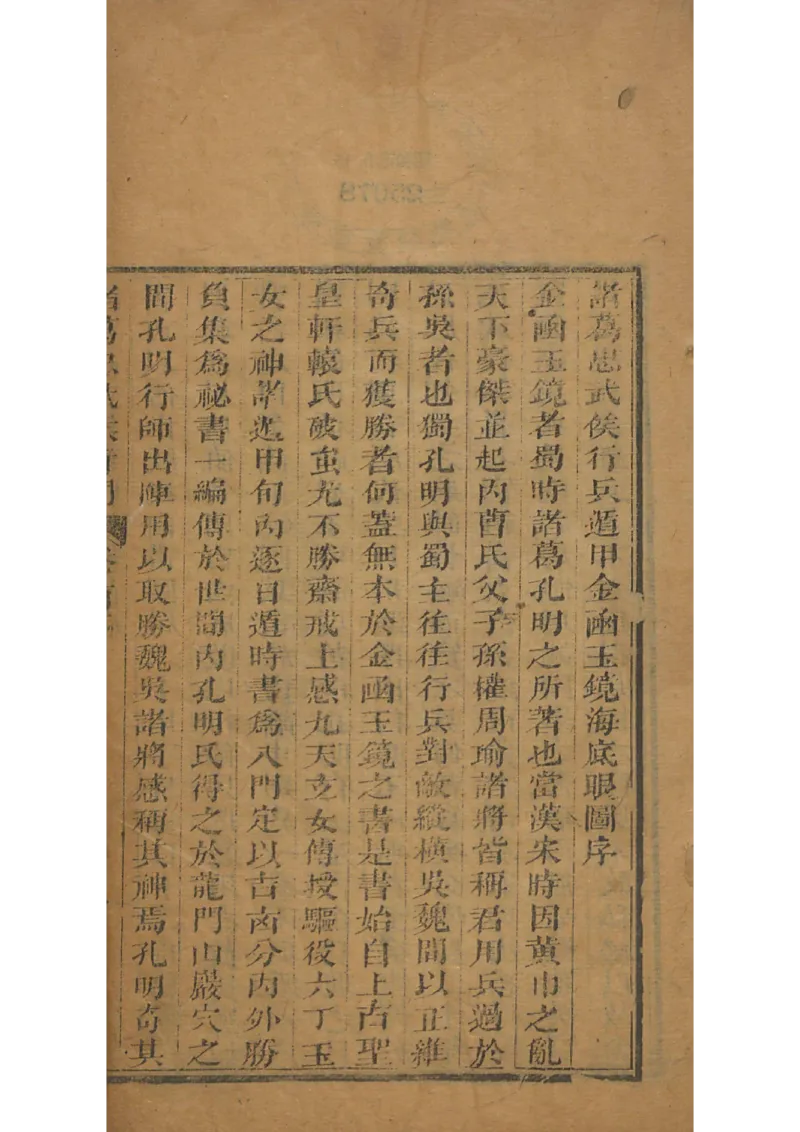 諸葛忠武侯行兵遁甲金函玉鏡海底眼圖序
金函玉鏡者蜀時諸葛孔明之所著也當漢末時因黃巾之亂
天下豪傑並起內曹氏父子孫權周瑜諸將皆稱君用兵過於
孫吳者也獨孔明與蜀主往往行兵對敵縱橫吳魏間以正雜
奇兵而獲勝者何蓋無本於金函玉鏡之書是書始自上古聖
皇軒轅氏破蚩尤不勝齋戒上感九天玄女傳授驅役六丁玉
女之神諸遁甲旬內逐日遁時書為八門定以吉凶分內外勝
負集為祕書一編傳於世間內孔明氏得之於龍門山嚴穴之
間孔明行師出陣用以取勝魏吳諸將感稱其神焉孔明奇其